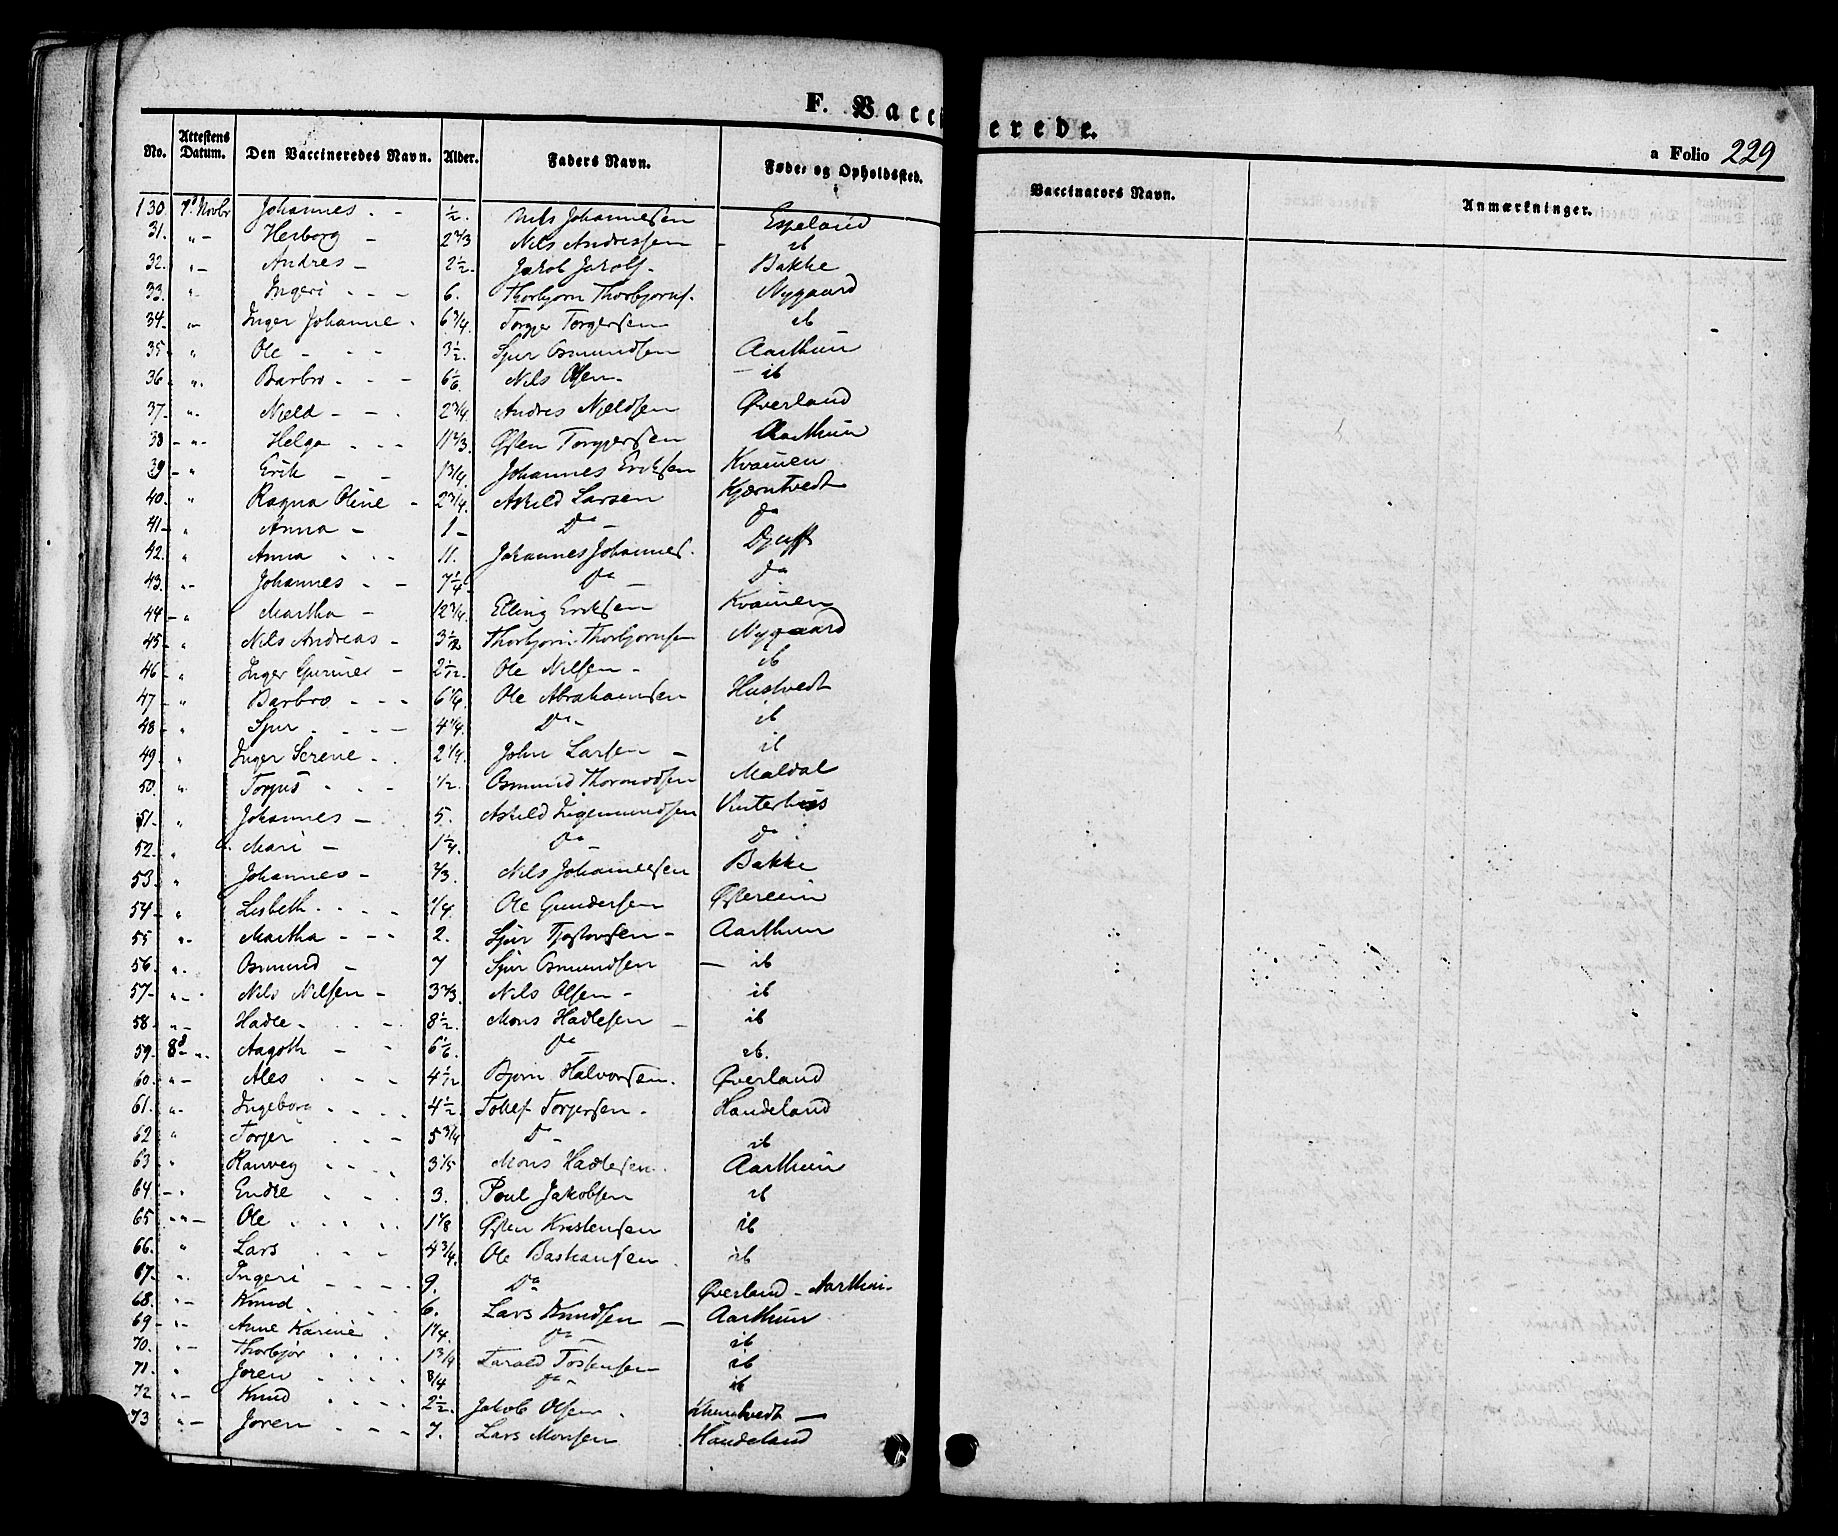 F. Vacci erede.
a Folio 229
No. Attestens Datum. Den Vaccineredes Navn. Alder. Faders Navn. Føde- og Opholdssted. Vaccinators Navn. Anmærkninger.
130 7d Novbr Johannes - - 1/2. Nils Johannesen Espeland
31. " - Herborg - 2 2/3 Nils Andressen - ib
32. " - Andres - 2 1/2. Jakob Jakobs. Bakke
33. " - Ingeri - - - 6. Thorbjørn Thorbjørns. Nygaard
34. " Inger Johanne . 6 3/4. Torger Torgersen ib
35 " Ole - - - 3 1/2. Sjur Osmundsen Aarthun
36 " . Barbro - - - 6 1/6. Nils Olsen - - ib
37. - " . Njeld - - . 2 3/4 Andres Njeldsen Øverland
38 - " - Helge - - - 11 2/3. Østen Torgersen Aarthun
39 - " Erik - - 1 3/4. Johannes Eriksen Kvamen
40. " Ragna Oline - 2 3/4. Askild Larsen Kjærntvedt
41 - " Anna - 1 - Do - Do
42. " Anna - - - 11. Johannes Johannes.
43. " - Johannes - - 7 1/4. Do - Do
44 - " Martha - 12 3/4. Elling Eriksen Kvamen
45 - " Nils Andreas - 3 1/2 Thorbjørn Thorbjørnsen Nygaard
46 - " Inger - 2 1/12. Ole Nilsen - ib
47 - " Barbro - - - 6 1/6. Ole Abrahamsen Hustvedt
48 - " Sjur . - - - 4 1/4. Do - ib
49. " Inger Serene - . 2 1/4. John Larsen - ib
50. " . Torjus - - - 1/2. Osmund Thormodsen Maldal
51 - " Johannes - 5. Askild Ingemundsen Vinterhus
52. " Mari - 1 1/4. Do - Do
53. " Johannes - 2/3. Nils Johannesen Bakke
54 - " Lisbeth . - - - 1/4. Ole Gundersen
55 " - Martha - - - 2. Sjur Tjostovsen - Aarthun
56 - " . Osmund - 7 Sjur Osmundsen - ib
57 - " - . Nils Nilsen - 3 2/3. Nils Olsen - ib
58 - " - Hadle - . - - . 8 1/2. Mons Hadlesen - ib
59. 8d - " . Aagoth - - 6 1/6. Do ib.
60. " - Ales . - - 4 1/12 Bjørn Halvorsen. Øverland
61. " - Ingeborg - - - . 4 1/2. Tollef Torjersen - Handeland
62 " Torjer . - - 5 3/4 Do - ib
63. " Ranveg - - - . 3 1/5 Mons Hadlesen . Aarthun
64 - " Endre . - - 3. Poul Jakobsen ib
65 " - Ole . . . . 1 1/8 Østen Kristensen ib
66. " Lars . - . 4 3/4. Ole Bastiansen . ib
67 - " . Ingeri - - - - 9. Do Øverland - Aarthun.
68. " - Knud . . . . 6. Lars Knudsen - Aarthun
69 - " - Anne Karine . 1 1/4. Do ib
70. " - Thorbjør . . . . 1 3/4 Tarald Tostensen ib
71. " Joren . . . . 3/4 Do - ib
72 " - Knud . . . . 2 1/2. Jakob Olsen .
73 " - Joren - - - 7. Lars Monsen . Handeland